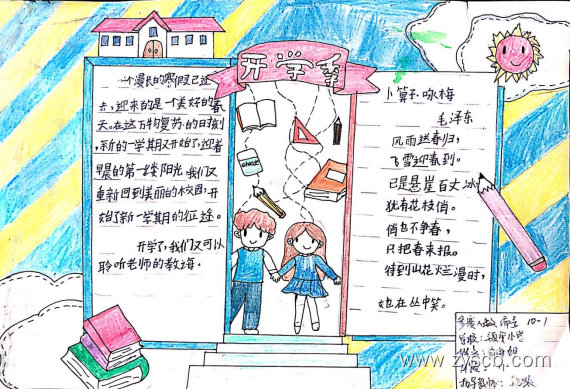 开学季
一个漫长的寒假已过
去，迎来的是一个美好的春
天。在这万物复苏的时刻
，新的一学期又开始了，迎着
早晨的第一缕阳光，我们又
重新回到美丽的校园，开
始了新一学期的征途。
开学了，我们又可以
聆听老师的教诲。
卜算子·咏梅
毛泽东
风雨送春归，
飞雪迎春到。
已是悬崖百丈冰
犹有花枝俏。
俏也不争春，
只把春来报。
待到山花烂漫时，
她在丛中笑。
10-1
指导教师：
www.zyscb.com